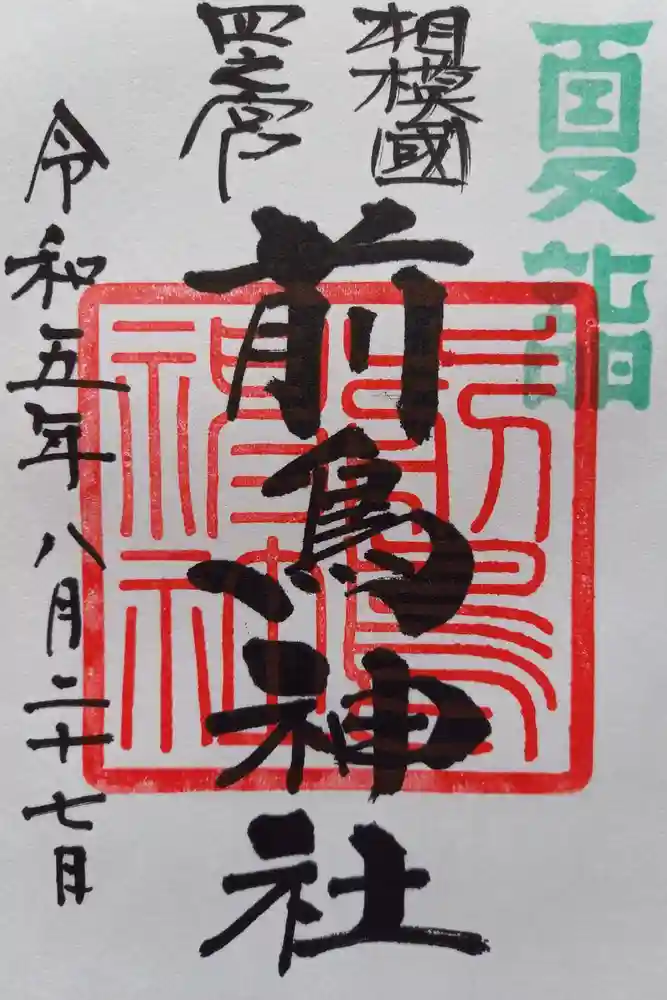 夏詣
相模國
四之宮
前鳥神社
令和五年八月二十七日